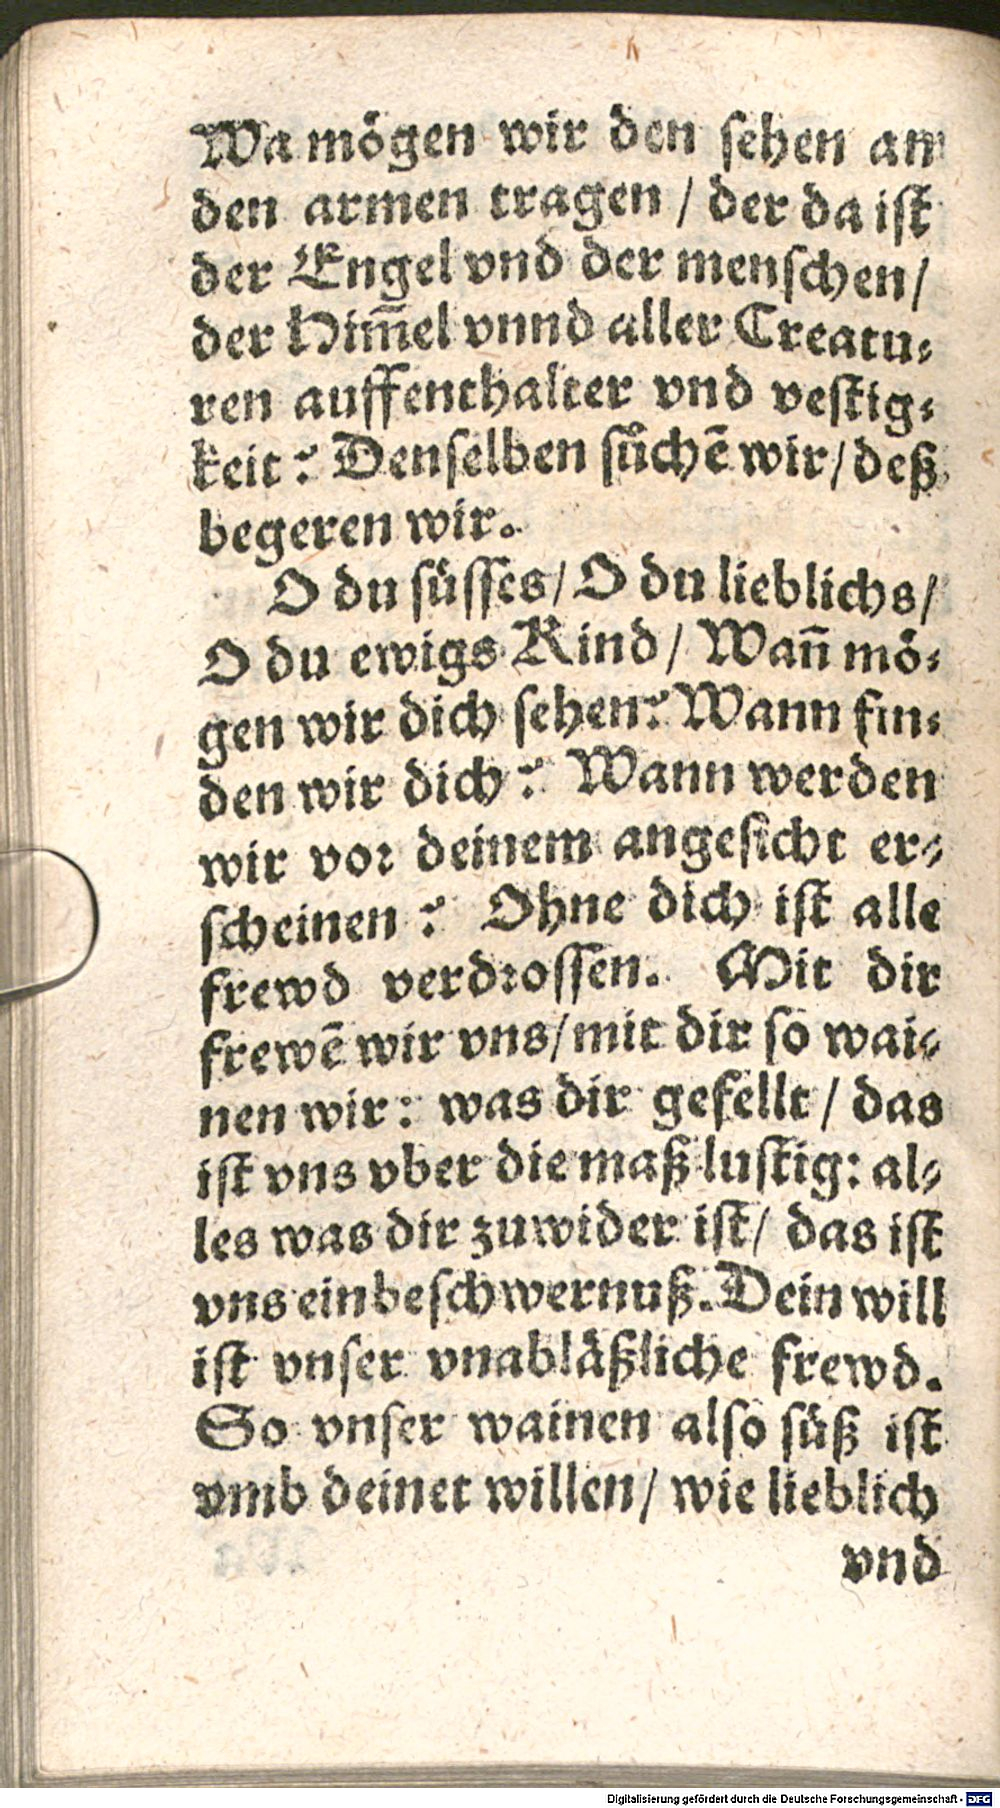 Wa mögen wir den sehen an
den armen tragen / der da ist
der Engel vnd der menschen /
der Him̄el vnnd aller Creatu-
ren auffenthalter vnd vestig-
keit? Denselben sůchē wir / deß
begeren wir.
O du süsses / O du lieblichs /
O du ewigs Kind / Wañ mö-
gen wir dich sehen? Wann fin-
den wir dich? Wann werden
wir vor deinem angesicht er-
scheinen? Ohne dich ist alle
frewd verdrossen. Mit dir
frewē wir vns / mit dir so wai-
nen wir: was dir gefellt / das
ist vns vber die maß lustig: al-
les was dir zuwider ist / das ist
vns ein beschwernuß. Dein will
ist vnser vnabläßliche frewd.
So vnser wainen also süß ist
vmb deinet willen / wie lieblich
vnd
Digitalisierung gefördert durch die Deutsche Forschungsgemeinschaft - DFG